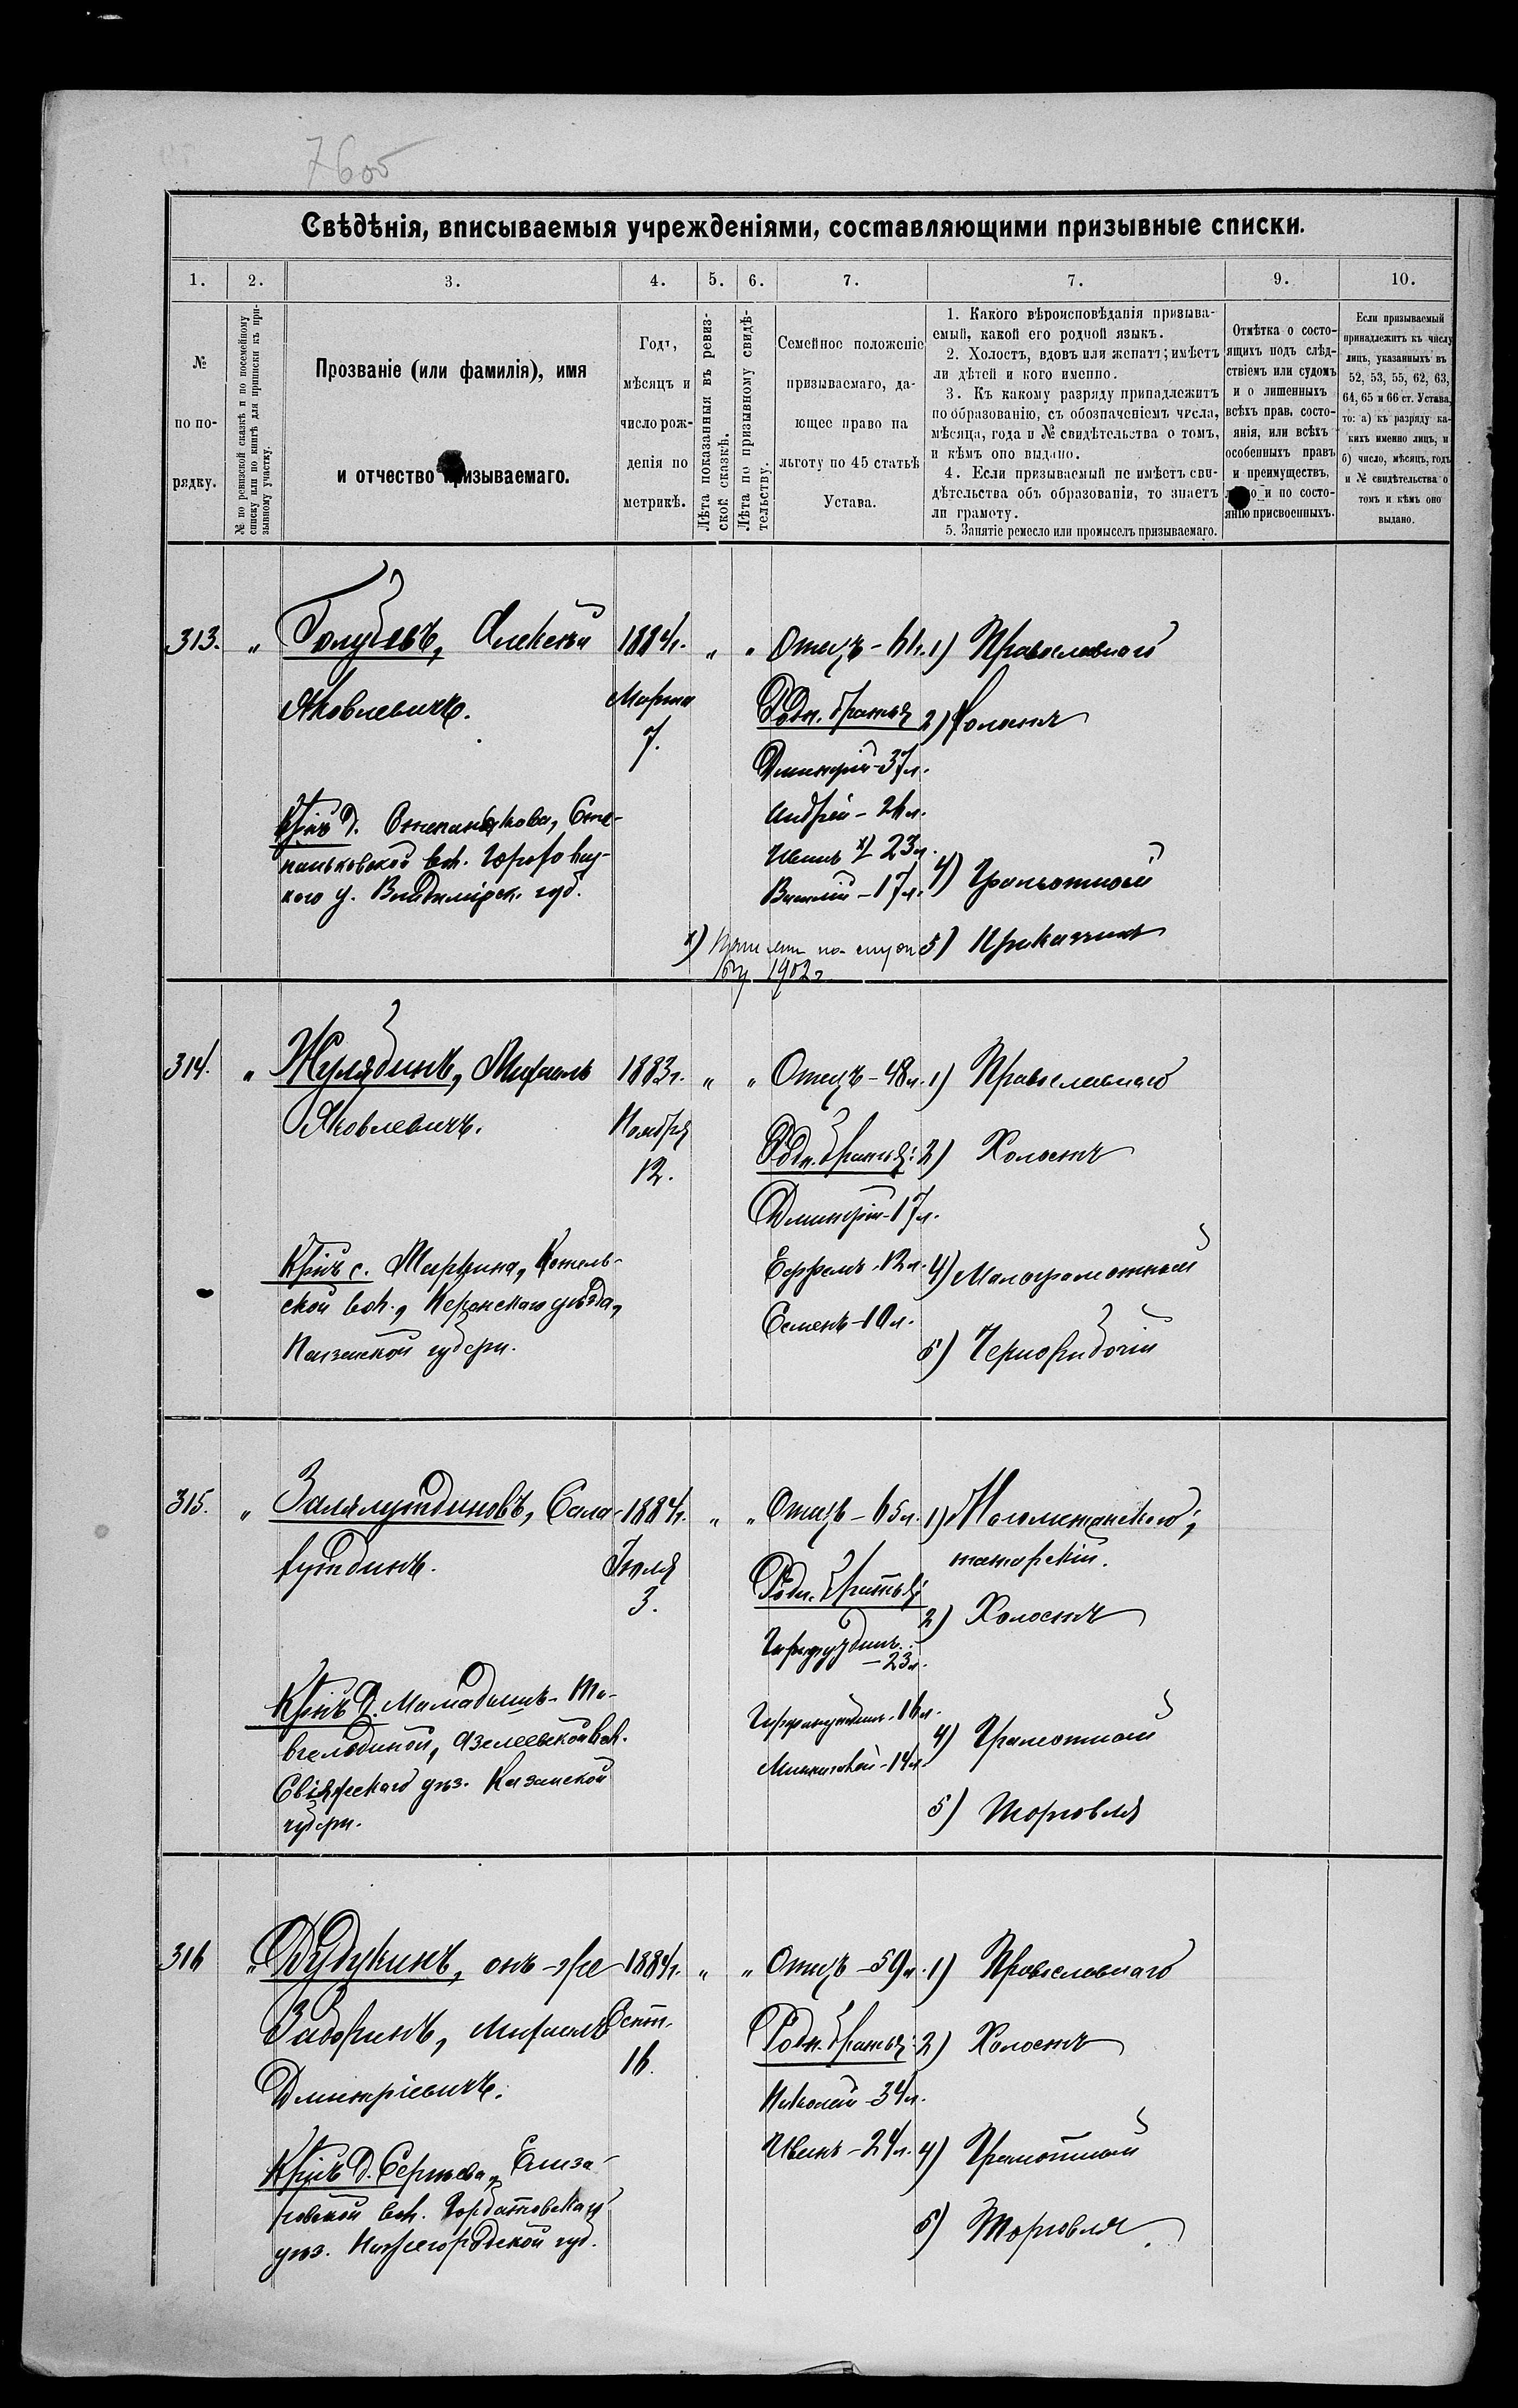 7605
Свѣдѣнія, вписываемыя учрежденіями, составляющими призывные списки.
1. 2. 3. 4. 5. 6. 7. 7. 9. 10.
№
по по-
рядку.
№ по ревизской сказкѣ и по посемейному
списку или по книгѣ для приписки къ при-
зывному участку.
Прозваніе (или фамилія), имя
и отчество призываемаго.
Годъ,
мѣсяцъ и
число рож-
денія по
метрикѣ.
Лѣта показанныя въ ревиз-
ской сказкѣ.
Лѣта по призывному свидѣ-
тельству.
Семейное положеніе
призываемаго, да-
ющее право на
льготу по 45 статьѣ
Устава.
1. Какого вѣроисповѣданія призыва-
емый, какой его родной языкъ.
2. Холостъ, вдовъ или женатъ; имѣетъ
ли дѣтей и кого именно.
3. Къ какому разряду принадлежитъ
по образованію, съ обозначеніемъ числа,
мѣсяца, года и № свидѣтельства о томъ,
и кѣмъ оно выдано.
4. Если призываемый не имѣетъ сви-
дѣтельства объ образованіи, то знаетъ
ли грамоту.
5. Занятіе ремесло или промыселъ призываемаго.
Отмѣтка о состо-
ящихъ подъ слѣд-
ствіемъ или судомъ
и о лишенныхъ
всѣхъ прав, состо-
янія, или всѣхъ
особенныхъ правъ
и преимуществъ,
лично и по состо-
янію присвоенныхъ.
Если призываемый
принадлежитъ къ числу
лицъ, указанныхъ въ
52, 53, 55, 62, 63,
64, 65 и 66 ст. Устава,
то: а) къ разряду ка-
кихъ именно лицъ, и
б) число, мѣсяцъ, годъ
и № свидѣтельства о
томъ и кѣмъ оно
выдано.
313. " Голубевъ, Алексѣй
Яковлевичъ.
Кр-нъ д. Степанькова, Сте-
паньковской вол. Гороховец-
кого у. Владимірск. губ.
1884г.
Марта
7.
" "
Отецъ - 61л.
Родн. братья
Дмитрій - 37л.
Андрей - 26л.
Иванъ х) 23л.
Василій - 17л.
х) на служ
бу 1902г
1) Православнаго
2) Холостъ
4) Грамотный
5) Прикащикъ
314. " Жулябинъ, Михаилъ
Яковлевичъ.
Кр-нъ с. Марцина, Котель-
ской вол., Керенскаго уѣзда,
Пензенской губерн.
1883г.
Ноября
12.
" "
Отецъ - 48л.
Родн. братья:
Дмитрій - 17л.
Ефремъ - 12л.
Семенъ - 10л.
1) Православнаго
2) Холостъ
4) Малограмотный
5) Чернорабочій
315. " Залялутдиновъ, Сала-
хутдинъ.
Кр-нъ д. Мамадышъ-
Азелеевской вол.
Свіяжскаго уѣз. Казанской
губерн.
1884г.
Іюля
3.
" "
Отецъ - 65л.
Родн. братья:
- 23л.
- 16л.
- 14л.
1) Магометанскаго,
татарскій.
2) Холостъ
4) Грамотный
5) Торговля
316 " Дудукинъ, онъ-же
Заборинъ, Михаилъ
Дмитріевичъ.
Кр-нъ д. Сергѣева, Елиза-
ровской вол. Горбатовскаго
уѣз. Нижегородской губ.
1884г.
Сент.
16.
" "
Отецъ - 59л.
Родн. братья:
Николай - 34л.
Иванъ - 24л.
1) Православнаго
2) Холостъ
4) Грамотный
5) Торговля.